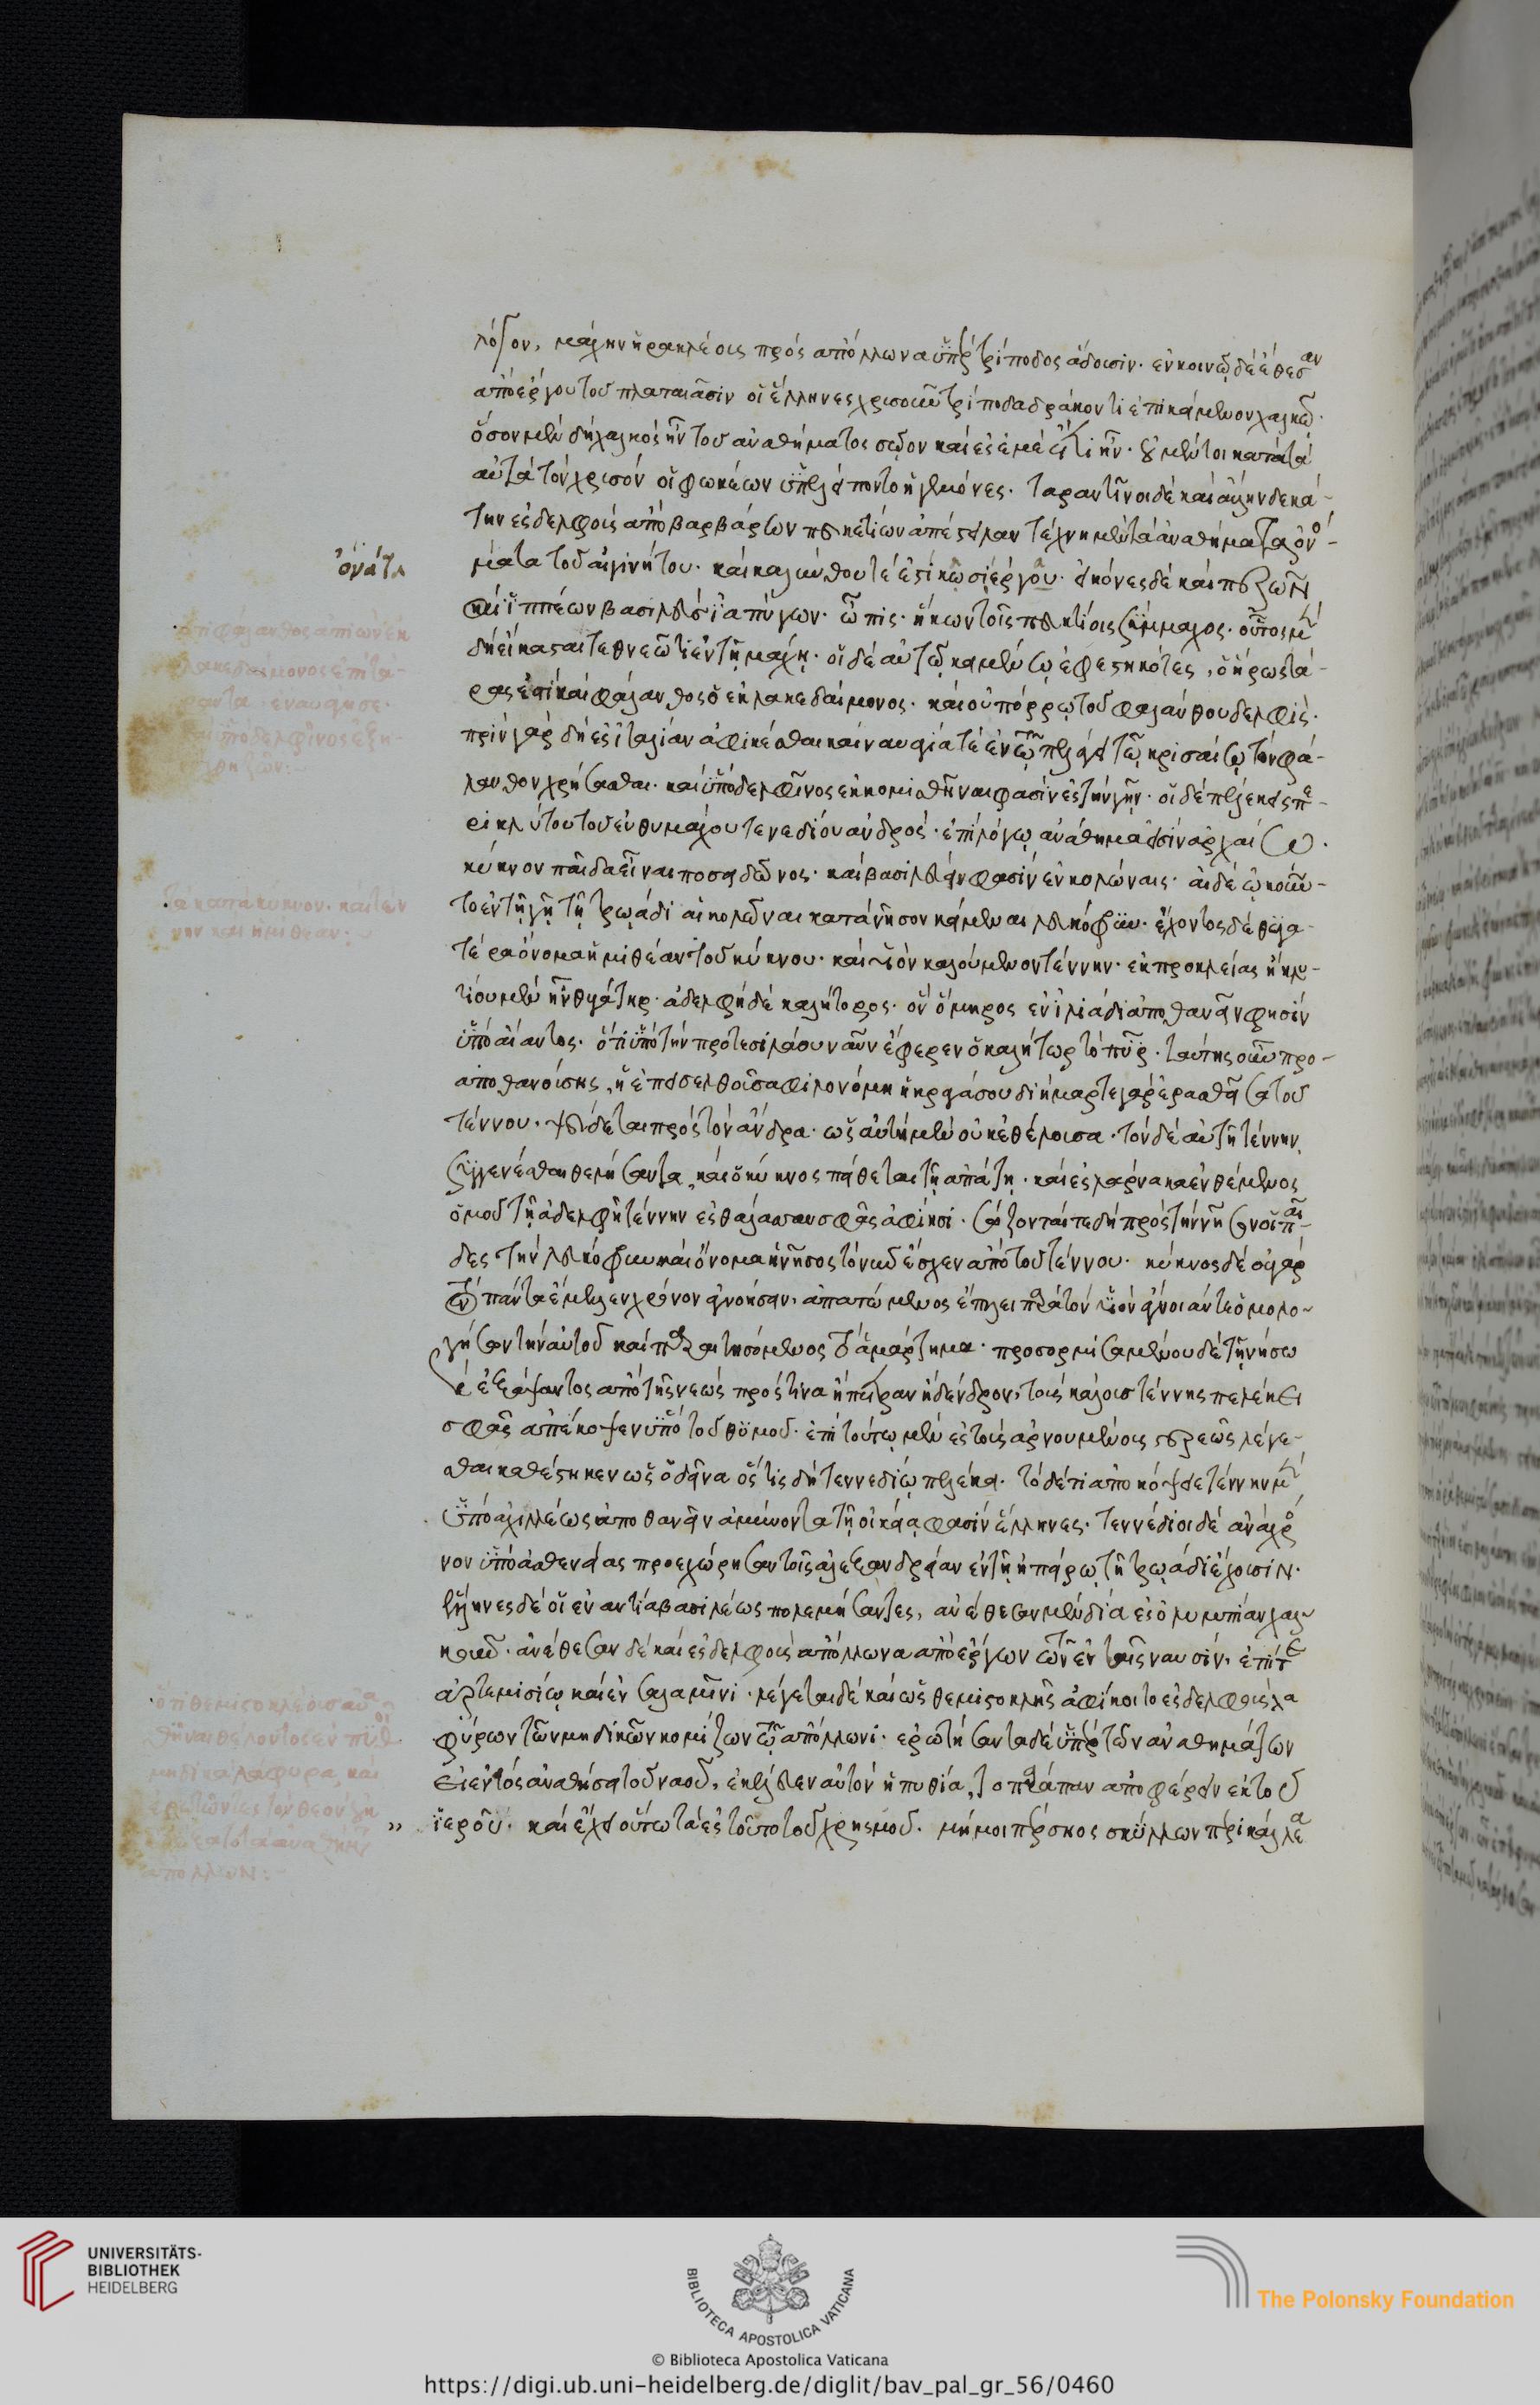 λόγον, μάχην ἡρακλέους πρὸς ἀπόλλωνα ὑπὲρ τρίποδος ἄδουσιν. ἐν κοινῷ δὲ ἔθεσαν
ἀπὸ ἔργου τοῦ πλαταιᾶσιν οἱ ἕλληνες χρυσοῦν τρίποδα δράκοντι ἐπικείμενον χαλκῷ.
ὅσον μὲν δὴ χαλκὸς ἦν τοῦ ἀναθήματος σῶον καὶ ἐς ἐμὲ ἔτι ἦν. οὐ μέντοι κατὰ τὰ
αὐτὰ τὸν χρυσὸν οἱ φωκέων ὑπελείποντο ἡγεμόνες. ταραντῖνοι δὲ καὶ ἄλλην δεκά-
την ἐς δελφοὺς ἀπὸ βαρβάρων πευκετίων ἀπέστειλαν τέχνη μὲν τὰ ἀναθήματα ὀνο-
ὀνάτα
μάτα τοῦ αἰγινήτου. καὶ καλύνθου τέ ἐστι κωσι ἔργου. εἰκόνες δὲ καὶ πεζῶν
καὶ ἱππέων βασιλεὺς ἰαπύγων. ὦπις. ἥκων τοῖς πευκετίοις σύμμαχος. οὗτος μὲν
δὴ εἴκασται τεθνεῶτι ἐν τῇ μάχῃ. οἱ δὲ αὐτῷ κειμένῳ ἐφεστηκότες, ὁ ἥρως τά-
ρας ἐστὶ καὶ φάλανθος ὁ ἐκ λακεδαίμονος. καὶ οὐ πόρρω τοῦ φαλάνθου δελφίς.
πρὶν γὰρ δὴ ἐς ἰταλίαν ἀφικέσθαι καὶ ναυαγίᾳ τε ἐν τῷ πελάγει τῷ κρισαίῳ τὸν φά-
λανθον χρήσασθαι. καὶ ὑπὸ δελφῖνος ἐκκομισθῆναι φασὶν ἐς τὴν γῆν. οἱ δὲ πελέκεις πε-
ρικλύτου τοῦ εὐθυμάχου τενεδίου ἀνδρός. ἐπὶ λόγῳ ἀνάθημα εἰσὶν ἀρχαίῳ.
κύκνον παῖδα εἶναι ποσειδῶνος. καὶ βασιλεύειν φασὶν ἐν κολώναις. αἱ δὲ ᾠκοῦν-
το ἐν τῇ γῇ τῇ τρῳάδι αἱ κολῶναι κατὰ νῆσον κείμεναι λευκόφρυν. ἔχοντος δὲ θυγα-
τέρα ὄνομα ἡμιθέαν τοῦ κύκνου. καὶ υἱὸν καλούμενον τέννην. ἐκ προκλείας ἣ κλυ-
τίου μὲν ἦν θυγάτηρ. ἀδελφὴ δὲ καλήτορος. ὃν ὅμηρος ἐν ἰλιάδι ἀποθανεῖν φησὶν
ὑπὸ αἴαντος. ὅτι ὑπὸ τὴν πρωτεσιλάου ναῦν ἔφερεν ὁ καλήτωρ τὸ πῦρ. ταύτης οὖν προ-
αποθανούσης, ἡ ἐπεισελθοῦσα φιλονόμη ἡ κραγάσου διήμαρτε γὰρ ἐρασθεῖσα τοῦ
τέννου. ψεύδεται πρὸς τὸν ἄνδρα. ὡς αὐτὴ μὲν οὐκ ἐθέλουσα. τὸν δὲ αὐτῇ τέννην
συγγενέσθαι θελήσαντα, καὶ ὁ κύκνος πείθεται τῇ ἀπάτῃ. καὶ ἐς λάρνακα ἐνθέμενος
ὁμοῦ τῇ ἀδελφῇ τέννην ἐς θάλασσαν σφᾶς ἀφίησι. σώζονταί τε δὴ πρὸς τὴν νῆσον οἱ παῖ-
δες τὴν λευκόφρυν καὶ ὄνομα ἡ νῆσος τὸ νῦν ἔσχεν ἀπὸ τοῦ τέννου. κύκνος δὲ οὐ γὰρ
τὸν πάντα ἔμελλεν χρόνον ἀγνοήσειν, ἀπατώμενος ἔπλει παρὰ τὸν υἱὸν ἄγνοιάν τε ὁμολο-
γήσων τὴν αὑτοῦ καὶ παραιτησόμενος τὸ ἁμάρτημα. προσορμισαμένου δὲ τῇ νήσω
καὶ ἐξάψαντος ἀπὸ τῆς νεὼς πρός τινα ἢ πέτραν ἢ δένδρον, τοὺς κάλους τέννης πελέκει
σφᾶς ἀπέκοψεν ὑπὸ τοῦ θυμοῦ. ἐπὶ τούτῳ μὲν ἐς τοὺς ἀρνουμένους στερεῶς λέγε-
σθαι καθέστηκεν ὡς ὁ δεῖνα ὅστις δὴ τεννεδίῳ πελέκει. τόδέ τι ἀποκόψειε τέννην μὲν
ὑπὸ ἀχιλλέως ἀποθανεῖν ἀμύνοντα τῇ οἰκείᾳ φασὶν ἕλληνες. τεννέδιοι δὲ ἀνὰ χρό
νον ὑπὸ ἀσθενείας προσεχώρησαν τοῖς ἀλεξανδρείαν ἐν τῇ ἠπείρῳ τῇ τρῳάδι ἔχουσιν.
ἕλληνες δὲ οἱ ἐναντία βασιλέως πολεμήσαντες, ἀνέθεσαν μὲν δία ἐς ὀλυμπίαν χαλ-
κοῦν. ἀνέθεσαν δὲ καὶ ἐς δελφοὺς ἀπόλλωνα ἀπὸ ἔργων τῶν ἐν ταῖς ναυσίν, ἐπί τε
ἀρτεμισίῳ καὶ ἐν σαλαμῖνι. λέγεται δὲ καὶ ὡς θεμιστοκλῆς ἀφίκοιτο ἐς δελφοὺς λα
φύρων τῶν μηδικῶν κομίζων τῷ ἀπόλλωνι. ἐρωτήσαντα δὲ ὑπὲρ τῶν ἀναθημάτων
εἰ ἐντὸς ἀναθήσει τοῦ ναοῦ, ἐκέλευεν αὐτὸν ἡ πυθία, τὸ παράπαν ἀποφέρειν ἐκ τοῦ
ἱεροῦ. καὶ ἔχει οὕτω τὰ ἐς τοῦτο τοῦ χρησμοῦ. μή μοι πέρσηος σκύλλων περικαλλέα
UNIVERSITÄTS-
BIBLIOTHEK
HEIDELBERG
BIBLIOTECA APOSTOLICA VATICANA
The Polonsky Foundation
© Biblioteca Apostolica Vaticana
https://digi.ub.uni-heidelberg.de/diglit/bav_pal_gr_56/0460